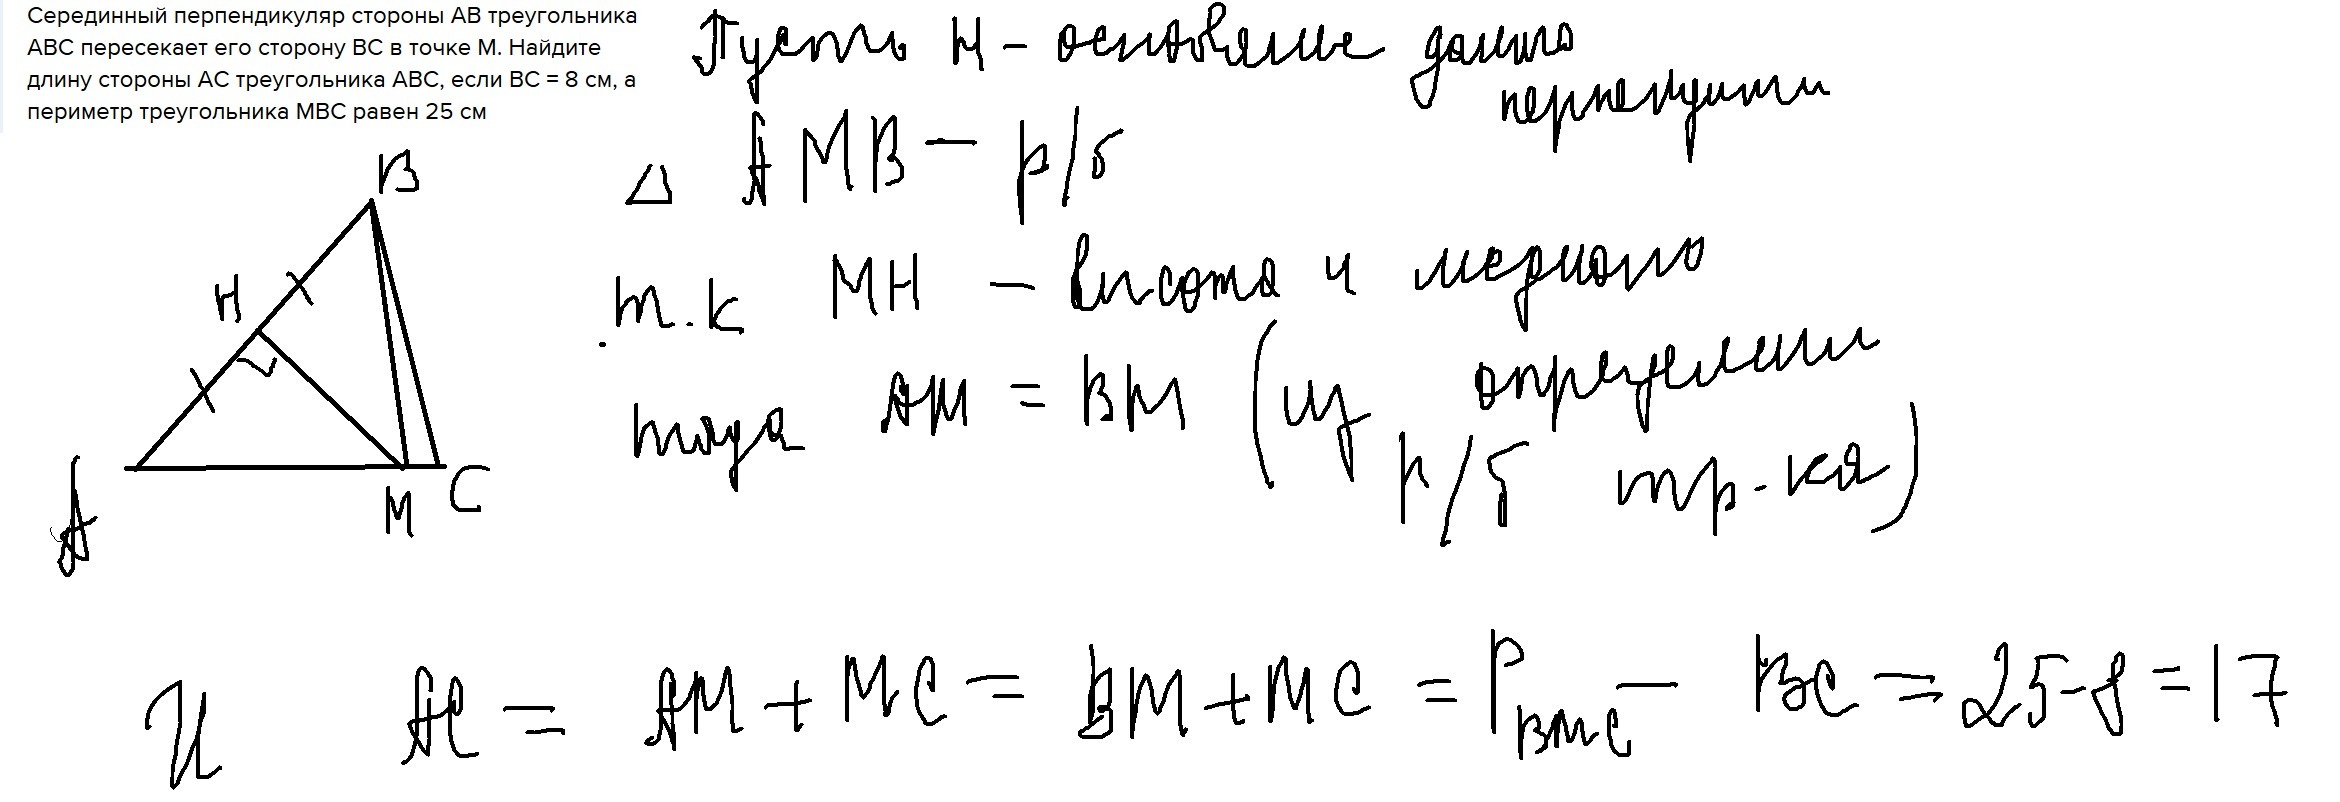 Серединный перпендикуляр стороны АВ треугольника
АВС пересекает его сторону ВС в точке М. Найдите
длину стороны АС треугольника АВС, если ВС = 8 см, а
периметр треугольника МВС равен 25 см
Пусть H - основание данного
перпендикуляра
△ AMB - р/б
т.к MH - высота и медиана
тогда AM = BM (из определения
р/б тр-ка)
B
H
A
M C
И AC = AM + MC = BM + MC = P BMC - BC = 25-8 = 17